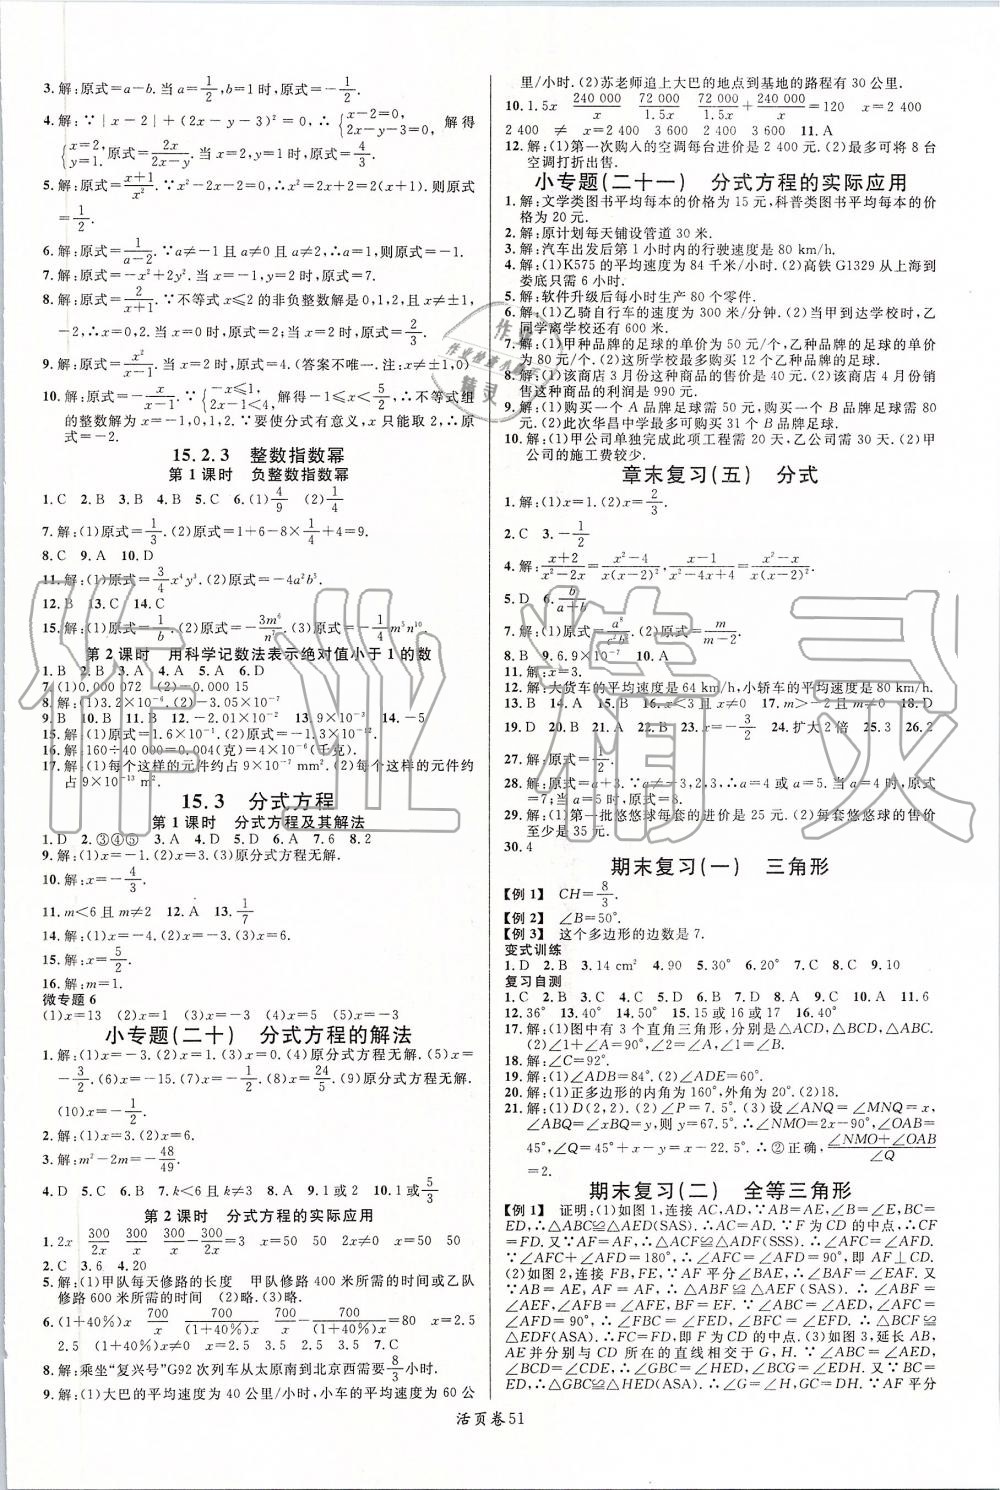 3. 解:原式=a-b. 当 a=1/2,b=1 时,原式=-1/2.
4. 解:∵|x-2|+(2x-y-3)²=0,∴{x-2=0, 2x-y-3=0, 解得
{x=2, y=1. 原式=2x/(2x-y). 当 x=2,y=1 时,原式=4/3.
5. 解:原式=(x+1)/x². ∵x²-2x-2=0,∴x²=2x+2=2(x+1). 则原式
=1/2.
6. 解:原式=1/(a-2). ∵a≠-1 且 a≠0 且 a≠2,∴a=1,则原式=-1.
7. 解:原式=-x²+2y². 当 x=-1,y=1 时,原式=1.
8. 解:原式=2/(x+1). ∵不等式 x≤2 的非负整数解是 0,1,2,且 x≠±1,
-2,∴x=0,2. 当 x=0 时,原式=2;当 x=2 时,原式=2/3.
9. 解:原式=x²/(x-1). 当 x=2 时,原式=4. (答案不唯一. 注:x≠±1,0)
10. 解:原式=-x/(x-1). {-x≤1, 2x-1<4, 解得-1≤x<5/2,∴不等式组
的整数解为 x=-1,0,1,2. ∵要使分式有意义,x 只能取 2. ∴原
式=-2.
15.2.3 整数指数幂
第 1 课时 负整数指数幂
1. C 2. B 3. A 4. B 5. C 6. (1)4/9 (2)1/4
7. 解:(1)原式=1/3. (2)原式=1+6-8×1/4+4=9.
8. C 9. A 10. D
11. 解:(1)原式=3/4x⁴y³. (2)原式=-4a²b⁵.
12. B 13. C 14. C
15. 解:(1)原式=1/b. (2)原式=-3m⁶/n⁷. (3)原式=-1/4m⁵n¹⁰
第 2 课时 用科学记数法表示绝对值小于 1 的数
1. B 2. B 3. A 4. A 5. A 6. D
7. (1)0.000 072 (2)-0.000 15
8. 解:(1)3.2×10⁻⁶. (2)-1×10⁻⁷.
9. B 10. B 11. B 12. -2.01×10⁻² 13. 9×10⁻³ 14. -5
15. 解:(1)原式=1.6×10⁻¹. (2)原式=-1.3×10⁻¹².
16. 解:160÷40 000=0.004(克)=4×10⁻⁶(千克).
17. 解:(1)每个这样的元件约占 9×10⁻⁷ mm². (2)每个这样的元件约
占 9×10⁻¹³ m².
15.3 分式方程
第 1 课时 分式方程及其解法
1. D 2. ③④⑤ 3. A 4. D 5. D 6. D 7. 6 8. 2
9. 解:(1)x=-1. (2)x=3. (3)原分式方程无解.
10. 解:x=-4/3.
11. m<6 且 m≠2 12. A 13. 1/7
14. 解:(1)x=-4. (2)x=-3. (3)x=6.
15. 解:x=5/2.
16. 解:m=1.
微专题 6
(1)x=13 (2)x=-1 (3)x=-5 (4)x=-5 (5)x=2
小专题(二十) 分式方程的解法
1. 解:(1)x=-3. (2)x=1. (3)x=0. (4)原分式方程无解. (5)x=
-3/2. (6)x=-15. (7)x=6. (8)x=24/5. (9)原分式方程无解.
(10)x=-1/2.
2. 解:(1)x=1. (2)x=6.
3. 解:m²-2m=-48/49.
4. D 5. C 6. B 7. k<6 且 k≠3 8. A 9. 1 或 2 10. 1 或 5/3
第 2 课时 分式方程的实际应用
1. 2x 300/2x 300/x 300/x-300/2x=3 x=50 50 2x≠0 x=50 50
2. C 3. 6 4. 20
5. 解:(1)甲队每天修路的长度 甲队修路 400 米所需的时间或乙队
修路 600 米所需的时间 (2)略. (3)略.
6. (1+40%)x 700/x 700/(1+40%)x 700/x-700/(1+40%)x=80 x=2.5
2.5 (1+40%)x≠0 x=2.5 2.5 7. A
8. 解:乘坐“复兴号”G92 次列车从太原南到北京西需要8/3小时.
9. 解:(1)大巴的平均速度为 40 公里/小时,小车的平均速度为 60 公
里/小时. (2)苏老师追上大巴的地点到基地的路程有 30 公里.
10. 1.5x 240 000/x 72 000/1.5x 72 000/1.5x+240 000/x=120 x=2 400
2 400 ≠ x=2 400 3 600 2 400 3 600 11. A
12. 解:(1)第一次购入的空调每台进价是 2 400 元. (2)最多可将 8 台
空调打折出售.
小专题(二十一) 分式方程的实际应用
1. 解:文学类图书平均每本的价格为 15 元,科普类图书平均每本的价
格为 20 元.
2. 解:原计划每天铺设管道 30 米.
3. 解:汽车出发后第 1 小时内的行驶速度是 80 km/h.
4. 解:(1)K575 的平均速度为 84 千米/小时. (2)高铁 G1329 从上海到
娄底只需 6 小时.
5. 解:软件升级后每小时生产 80 个零件.
6. 解:(1)乙骑自行车的速度为 300 米/分钟. (2)当甲到达学校时,乙
同学离学校还有 600 米.
7. 解:(1)甲种品牌的足球的单价为 50 元/个,乙种品牌的足球的单价
为 80 元/个. (2)这所学校最多购买 12 个乙种品牌的足球.
8. 解:(1)该商店 3 月份这种商品的售价是 40 元. (2)该商店 4 月份销
售这种商品的利润是 990 元.
9. 解:(1)购买一个 A 品牌足球需 50 元,购买一个 B 品牌足球需 80
元. (2)此次华昌中学最多可购买 31 个 B 品牌足球.
10. 解:(1)甲公司单独完成此项工程需 20 天,乙公司需 30 天. (2)甲
公司的施工费较少.
章末复习(五) 分式
1. 解:(1)x=1. (2)x=2/3.
2. C 3. -1/2
4. 解:(x+2)/(x²-2x)=(x²-4)/x(x-2)²,(x-1)/(x²-4x+4)=(x²-x)/x(x-2)².
5. D 6. b/(a+b)
7. 解:(1)原式=a⁸/(c²b). (2)原式=m/(m-2).
8. B 9. 6.9×10⁻⁷ 10. A
11. 解:x=3.
12. 解:大货车的平均速度是 64 km/h,小轿车的平均速度是 80 km/h.
13. B 14. A 15. B 16. x<3 且 x≠0 17. m>-2 且 m≠0 18. D
19. D 20. B 21. A 22. A 23. x=-3/2 24. 扩大 2 倍 25. 3 26. 2
27. 解:原式=1/2.
28. 解:原式=a+3. ∵a≠-3,2,3,∴a=4 或 a=5. 当 a=4 时,原式
=7;当 a=5 时,原式=8.
29. 解:(1)第一批悠悠球每套的进价是 25 元. (2)每套悠悠球的售价
至少是 35 元.
30. 4
期末复习(一) 三角形
【例 1】 CH=8/3.
【例 2】 ∠B=50°.
【例 3】 这个多边形的边数是 7.
变式训练
1. D 2. B 3. 14 cm² 4. 90 5. 30° 6. 20° 7. B 8. C 9. 10
复习自测
1. C 2. C 3. B 4. B 5. D 6. C 7. D 8. B 9. C 10. A 11. 6
12. 36° 13. 40° 14. 50° 15. 15 或 16 或 17 16. 40°
17. 解:(1)图中有 3 个直角三角形,分别是△ACD,△BCD,△ABC.
(2)∠1+∠A=90°,∠2=∠A.
18. 解:∠C=92°.
19. 解:(1)∠ADB=84°. (2)∠ADE=60°.
20. 解:(1)正多边形的内角为 160°,外角为 20°. (2)18.
21. 解:(1)D(2,2). (2)∠P=7.5°. (3)设∠ANQ=∠MNQ=x,
∠ABQ=∠xBQ=y,则 y=67.5°. ∴∠NMO=2x-90°,∠OAB=
45°,∠Q=45°+x-y=x-22.5°. ∴②正确,(∠NMO+∠OAB)/∠Q
=2.
期末复习(二) 全等三角形
【例 1】 证明:(1)如图 1,连接 AC,AD,∵AB=AE,∠B=∠E,BC=
ED,∴△ABC≌△AED(SAS). ∴AC=AD. ∵F 为 CD 的中点,∴CF
=FD. 又∵AF=AF,∴△ACF≌△ADF(SSS). ∴∠AFC=∠AFD.
∵∠AFC+∠AFD=180°,∴∠AFC=∠AFD=90°,即 AF⊥CD.
(2)如图 2,连接 FB,FE,∵AF 平分∠BAE,∴∠BAF=∠EAF. 又
∵AB=AE,AF=AF,∴△ABF≌△AEF(SAS). ∴∠ABF=
∠AEF,∠AFB=∠AFE,BF=EF. ∵∠ABC=∠AED,∠AFC=
∠AFD=90°,∴∠FBC=∠FED,∠BFC=∠EFD. ∴△CBF≌
△EDF(ASA). ∴CF=FD,即 F 为 CD 的中点. (3)如图 3,延长 AB,
AE 并分别与 CD 所在的直线相交于 G,H. ∵∠ABC=∠AED,
∴∠GBC=∠HED. 又∵∠BCD=∠EDC,∴∠GCB=∠HDE.
∴△GBC≌△HED(ASA). ∴∠G=∠H,GC=DH. ∵AF 平分
活页卷 51
作业精灵